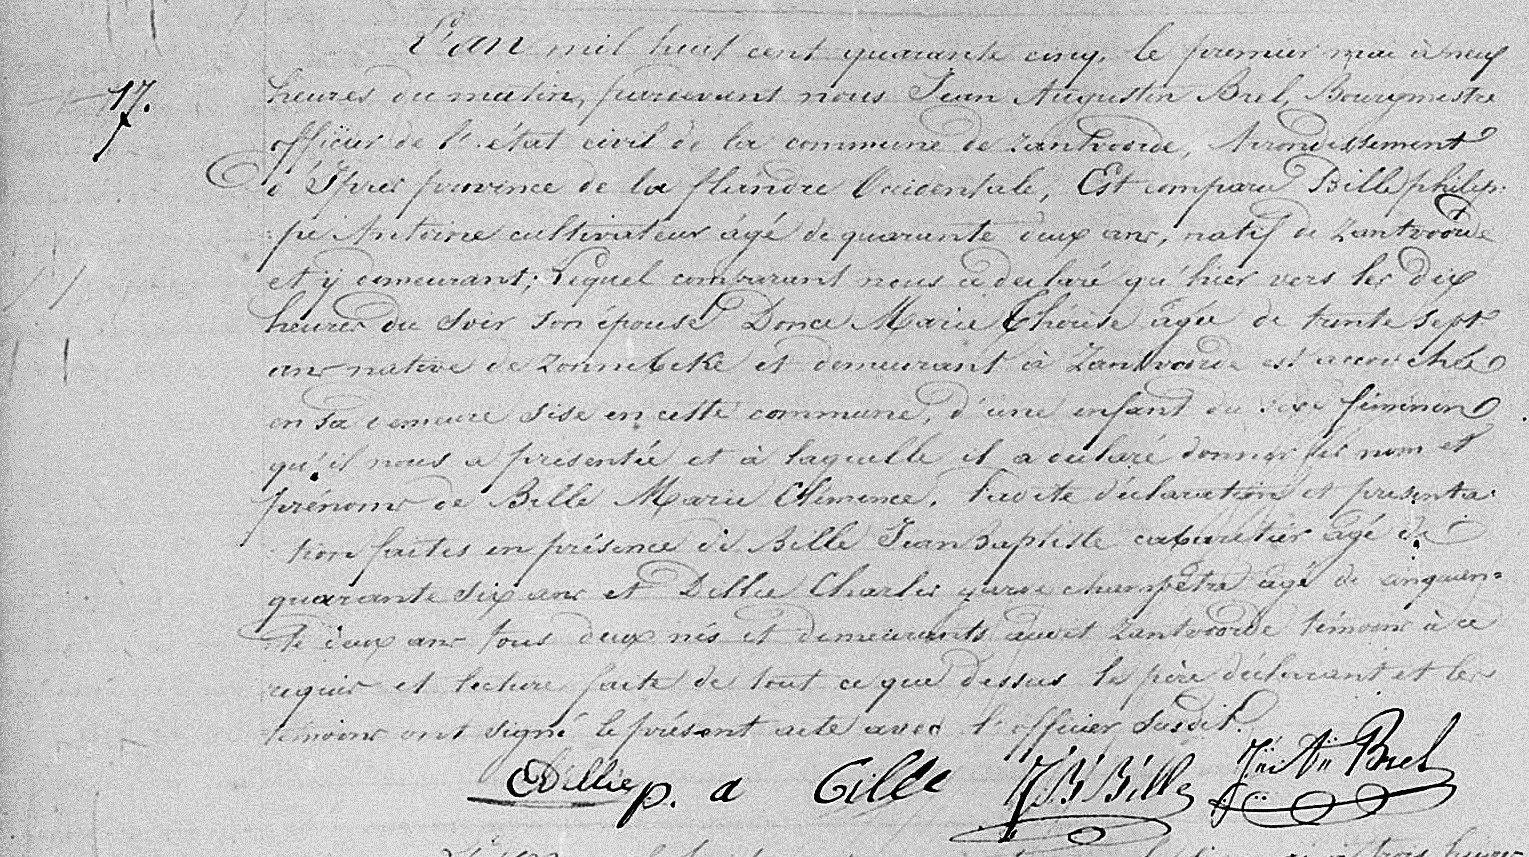 L'an mil huit cent quarante cinq, le premier mai à neuf
17.
heures du matin, pardevant nous Jean Augustin Brel, Bourgmestre
officier de l'état civil de la commune de Zantvoorde, Arrondissement
d'Ypres province de la flandre Occidentale, Est comparu Bille philip:
:pe Antoine cultivateur âgé de quarante deux ans, natif de Zantvoorde
et y demeurant; Lequel comparant nous a déclaré qu'hier vers les dix
heures du soir son épouse Donce Marie Thérèse âgée de trente sept
ans native de Zonnebeke et demeurant à Zantvoorde est accouchée
en sa demeure sise en cette commune, d'une enfant du sexe féminin
qu'il nous a présentée et à laquelle il a déclaré donner les nom et
prénoms de Bille Marie Clémence. Ladite déclaration et présenta:
tion faites en présence de Bille Jean Baptiste cabaretier âgé de
quarante six ans et Dillie Charles garde champêtre âgé de cinquan=
te deux ans tous deux nés et demeurants audit Zantvoorde témoins à ce
requis et lecture faite de tout ce que dessus le père déclarant et les
témoins ont signé le présent acte avec l'officier susdit.
C Dillie p. a Bille J B Bille Jn An Brel